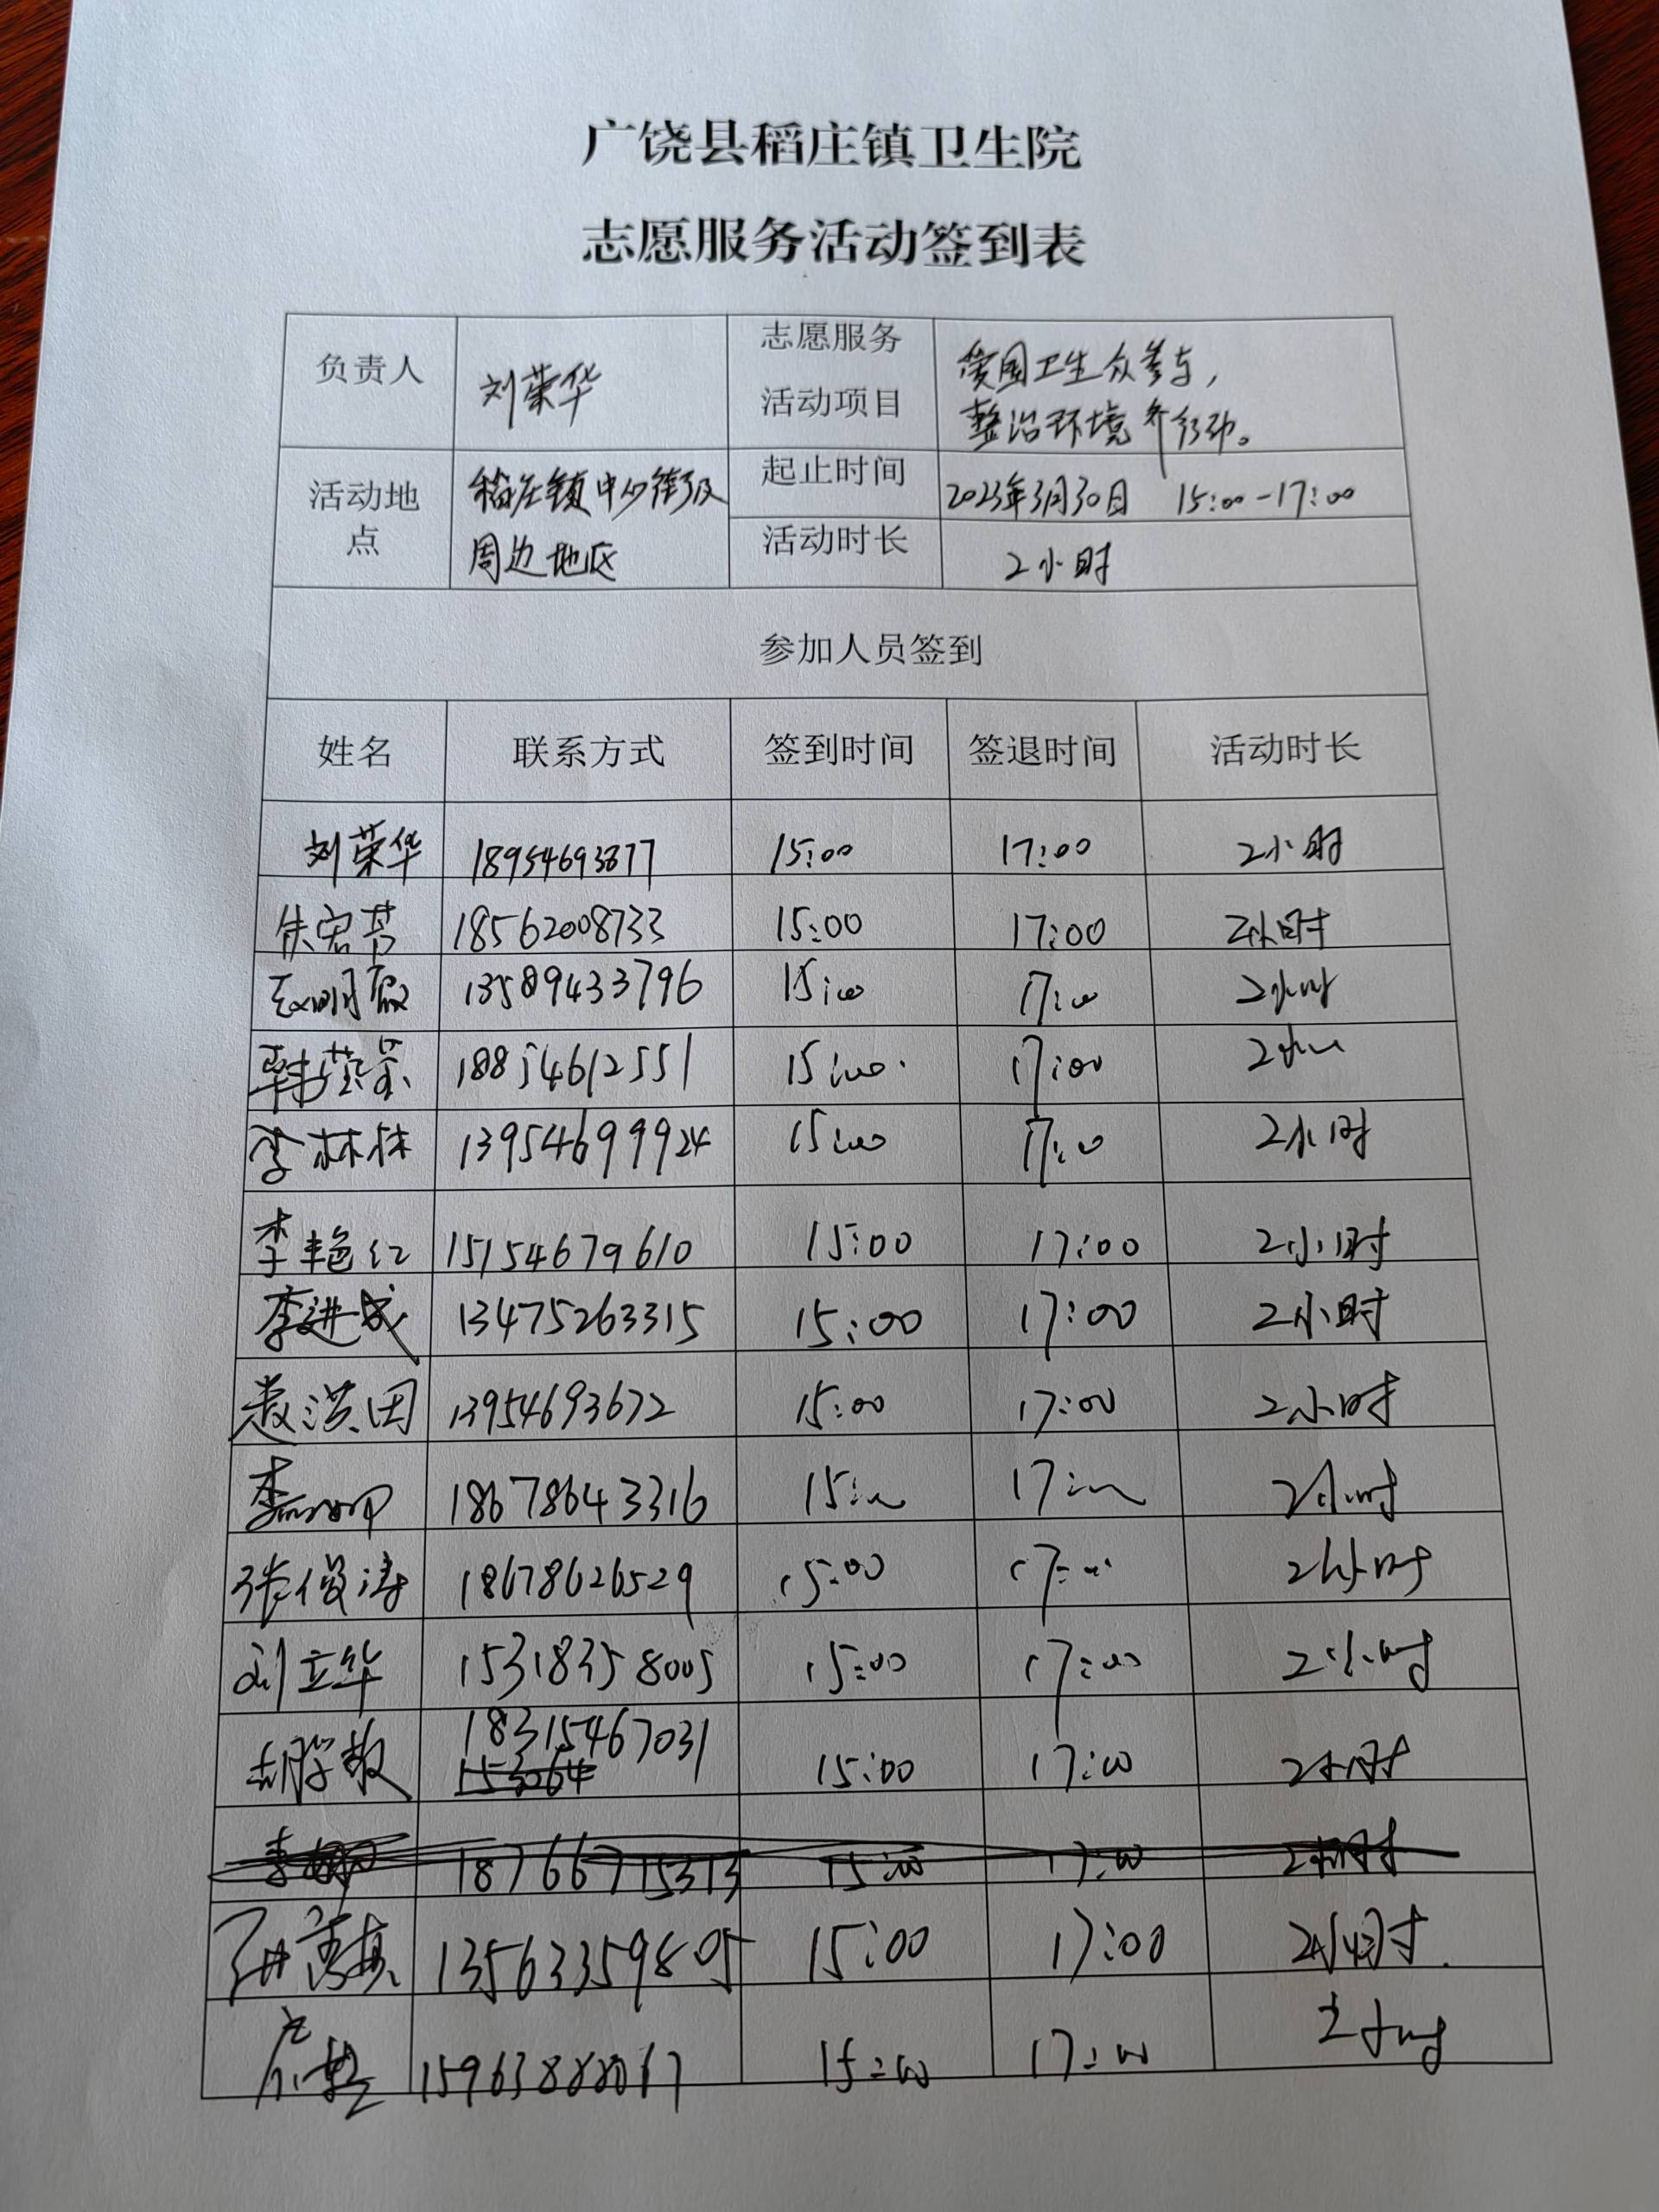 广饶县稻庄镇卫生院
志愿服务活动签到表
负责人 刘荣华 志愿服务活动项目 爱国卫生众参与,
整治环境齐行动。
活动地点 稻庄镇中心街及
周边地区
起止时间 2023年3月30日 15:00-17:00
活动时长 2小时
参加人员签到
姓名 联系方式 签到时间 签退时间 活动时长
刘荣华 18954693877 15:00 17:00 2小时
18562008733 15:00 17:00 2小时
13589433796 15:00 17:00 2小时
18854612551 15:00 17:00 2小时
李林林 13954699924 15:00 17:00 2小时
李艳红 15154679610 15:00 17:00 2小时
李进成 13475263315 15:00 17:00 2小时
13954693672 15:00 17:00 2小时
18678643316 15:00 17:00 2小时
张俊涛 18678626529 15:00 17:00 2小时
刘立华 15318358005 15:00 17:00 2小时
胡学敏 18315467031 15:00 17:00 2小时
153064
18766715313 15:00 17:00 2小时
13563359805 15:00 17:00 2小时
15:00 17:00 2小时